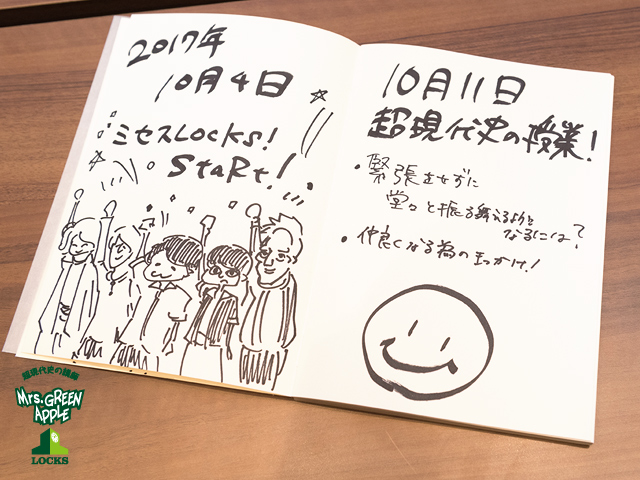 2017年
10月4日
ミセスLOCKS!
StaRt!
10月11日
超現代史の授業!
・緊張をせずに
堂々と振る舞えるように
なるには?
・仲良くなる為のきっかけ!
超現代史の講師
Mrs. GREEN
APPLE
LOCKS